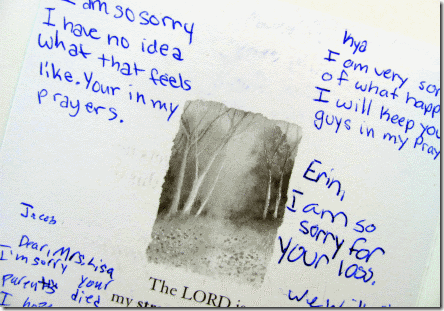 I am so sorry
I have no idea
what that feels
like. Your in my
prayers.
Kya
I am very sor
of what happ
I will keep you
guys in my Pray
Erin,
I am so
sorry for
your loss.
Jacob
Drar, Mrs. Lisa
I'm sorry your
parents died
I hope
The LORD is
my str